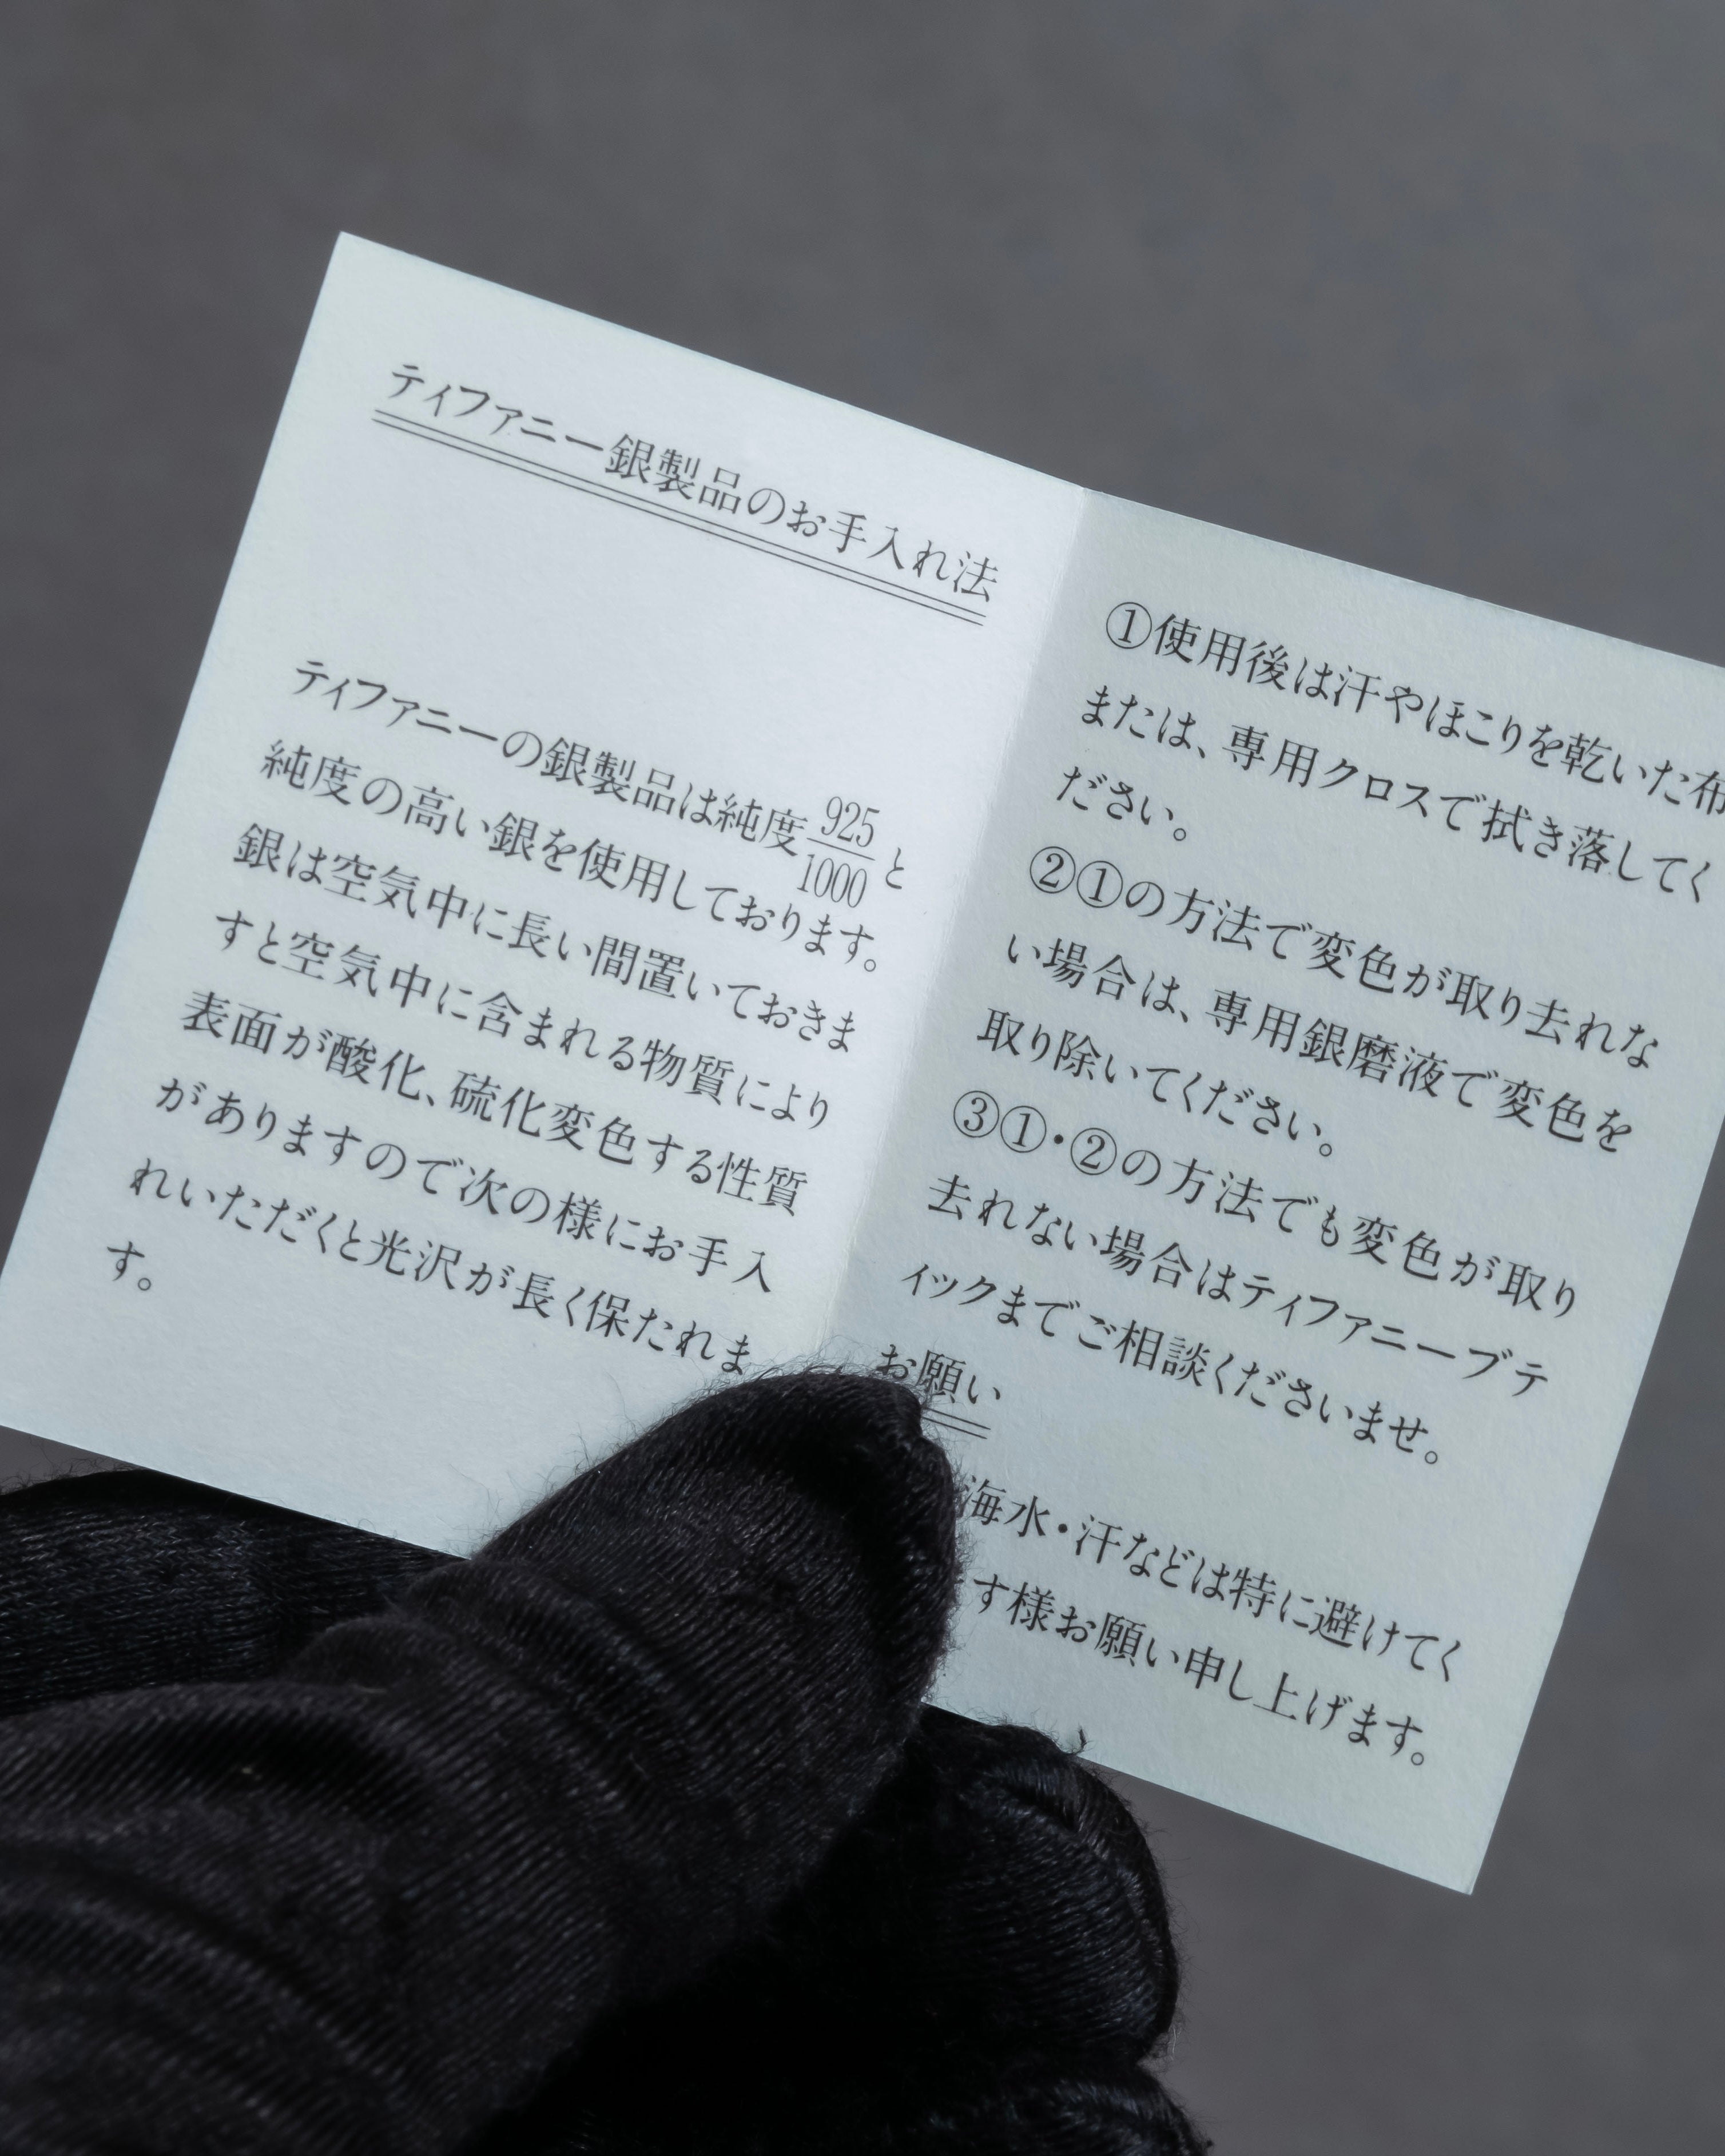 ティファニー銀製品のお手入れ法
ティファニーの銀製品は純度925/1000と
純度の高い銀を使用しております。
銀は空気中に長い間置いておきま
すと空気中に含まれる物質により
表面が酸化、硫化変色する性質
がありますので次の様にお手入
れいただくと光沢が長く保たれま
す。
①使用後は汗やほこりを乾いた布
または、専用クロスで拭き落してく
ださい。
②①の方法で変色が取り去れな
い場合は、専用銀磨液で変色を
取り除いてください。
③①・②の方法でも変色が取り
去れない場合はティファニーブテ
ィックまでご相談くださいませ。
お願い
海水・汗などは特に避けてく
す様お願い申し上げます。